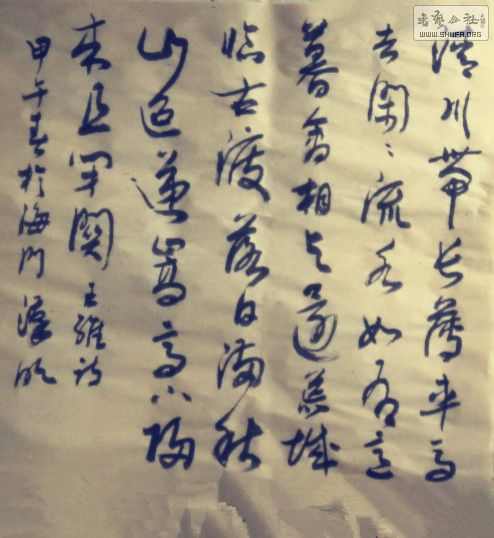 清川帶长薄车马
去闲〻流水如有意
暮禽相与還荒城
临古渡落日满秋
山迢递嵩高下归
来且闭关 王维诗
甲午春於海门
书法公社
WWW.SHUFA.ORG